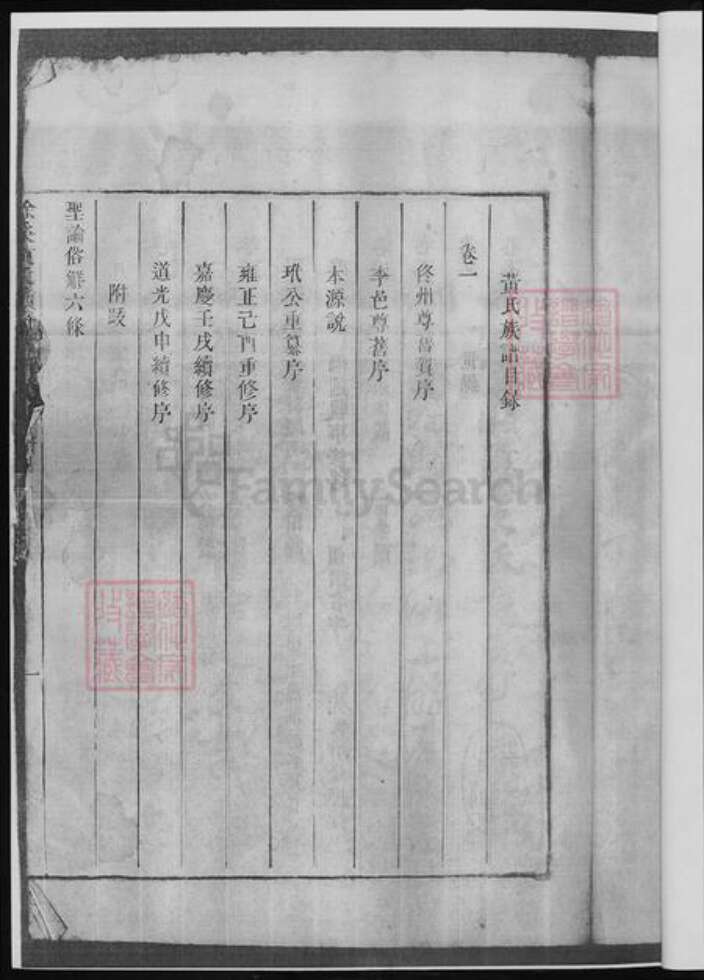 黃氏族譜目錄
卷一
佟州尊舊賀序
李邑尊舊序
本源說
玳公重纂序
雍正己酉重修序
嘉慶壬戌續修序
道光戊申續修序
附跋
聖諭俗解六條
一
FamilySearch